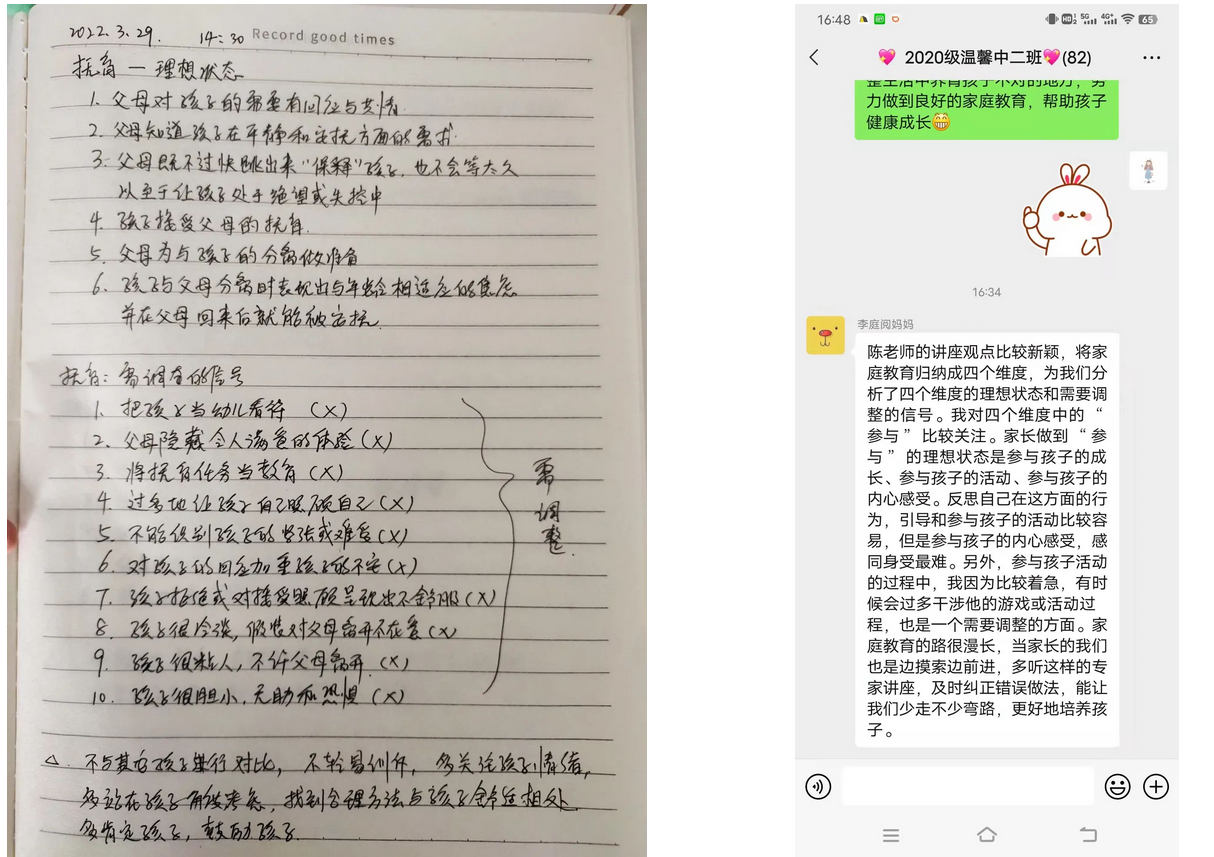 2022.3.29. 14:30 Record good times
抚育一理想状态
1. 父母对孩子的需要有回应与共情
2. 父母知道孩子在平静和安抚方面的需求.
3. 父母既不过快跳出来“保释”孩子,也不会等太久
以至于让孩子处于绝望或失控中
4. 孩子接受父母的抚育.
5. 父母为与孩子的分离做准备
6. 孩子与父母分离时表现出与年龄相适应的焦虑
并在父母回来后就能被安抚.
抚育:需调查的信号
1. 把孩子当幼儿看待 (×)
2. 父母隐藏令人满意的体验(×)
3. 将抚育任务当教育(×)
4. 过多地让孩子自己照顾自己(×)
5. 不能识别孩子的紧张或难受(×)
6. 对孩子的回应加重孩子的不安(×)
7. 孩子拒绝或对接受照顾呈现出不舒服(×)
8. 孩子很冷淡,假装对父母离开不在意(×)
9. 孩子很粘人,不许父母离开.(×)
10. 孩子很胆小,无助和恐惧(×)
需调整.
△. 不与其它孩子进行对比, 不轻易训斥, 多关注孩子情绪,
多站在孩子角度考虑,找到合理方法与孩子舒适相处.
多肯定孩子,鼓励孩子.
16:48 HD2 5G 4G+ 65
2020级温馨中二班(82)
整生活中养育孩子不对的地方,努
力做到良好的家庭教育,帮助孩子
健康成长
16:34
李庭阅妈妈
陈老师的讲座观点比较新颖,将家
庭教育归纳成四个维度,为我们分
析了四个维度的理想状态和需要调
整的信号。我对四个维度中的“
参与”比较关注。家长做到“参
与”的理想状态是参与孩子的成
长、参与孩子的活动、参与孩子的
内心感受。反思自己在这方面的行
为,引导和参与孩子的活动比较容
易,但是参与孩子的内心感受,感
同身受最难。另外,参与孩子活动
的过程中,我因为比较着急,有时
候会过多干涉他的游戏或活动过
程,也是一个需要调整的方面。家
庭教育的路很漫长,当家长的我们
也是边摸索边前进,多听这样的专
家讲座,及时纠正错误做法,能让
我们少走不少弯路,更好地培养孩
子。